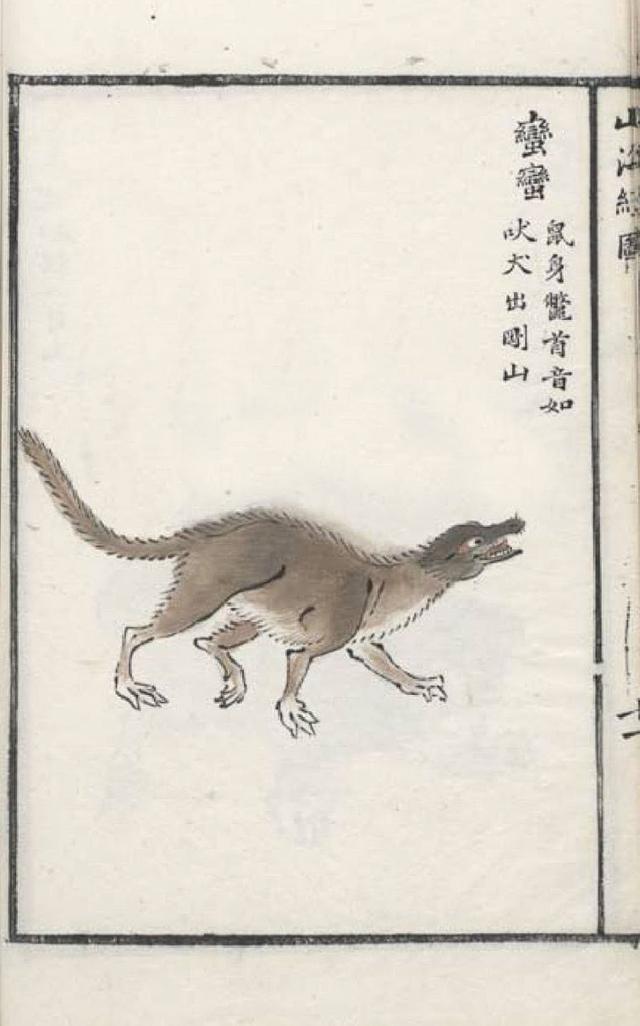 山海經圖
蠻蠻
鼠身鼈首音如
吠犬出剛山